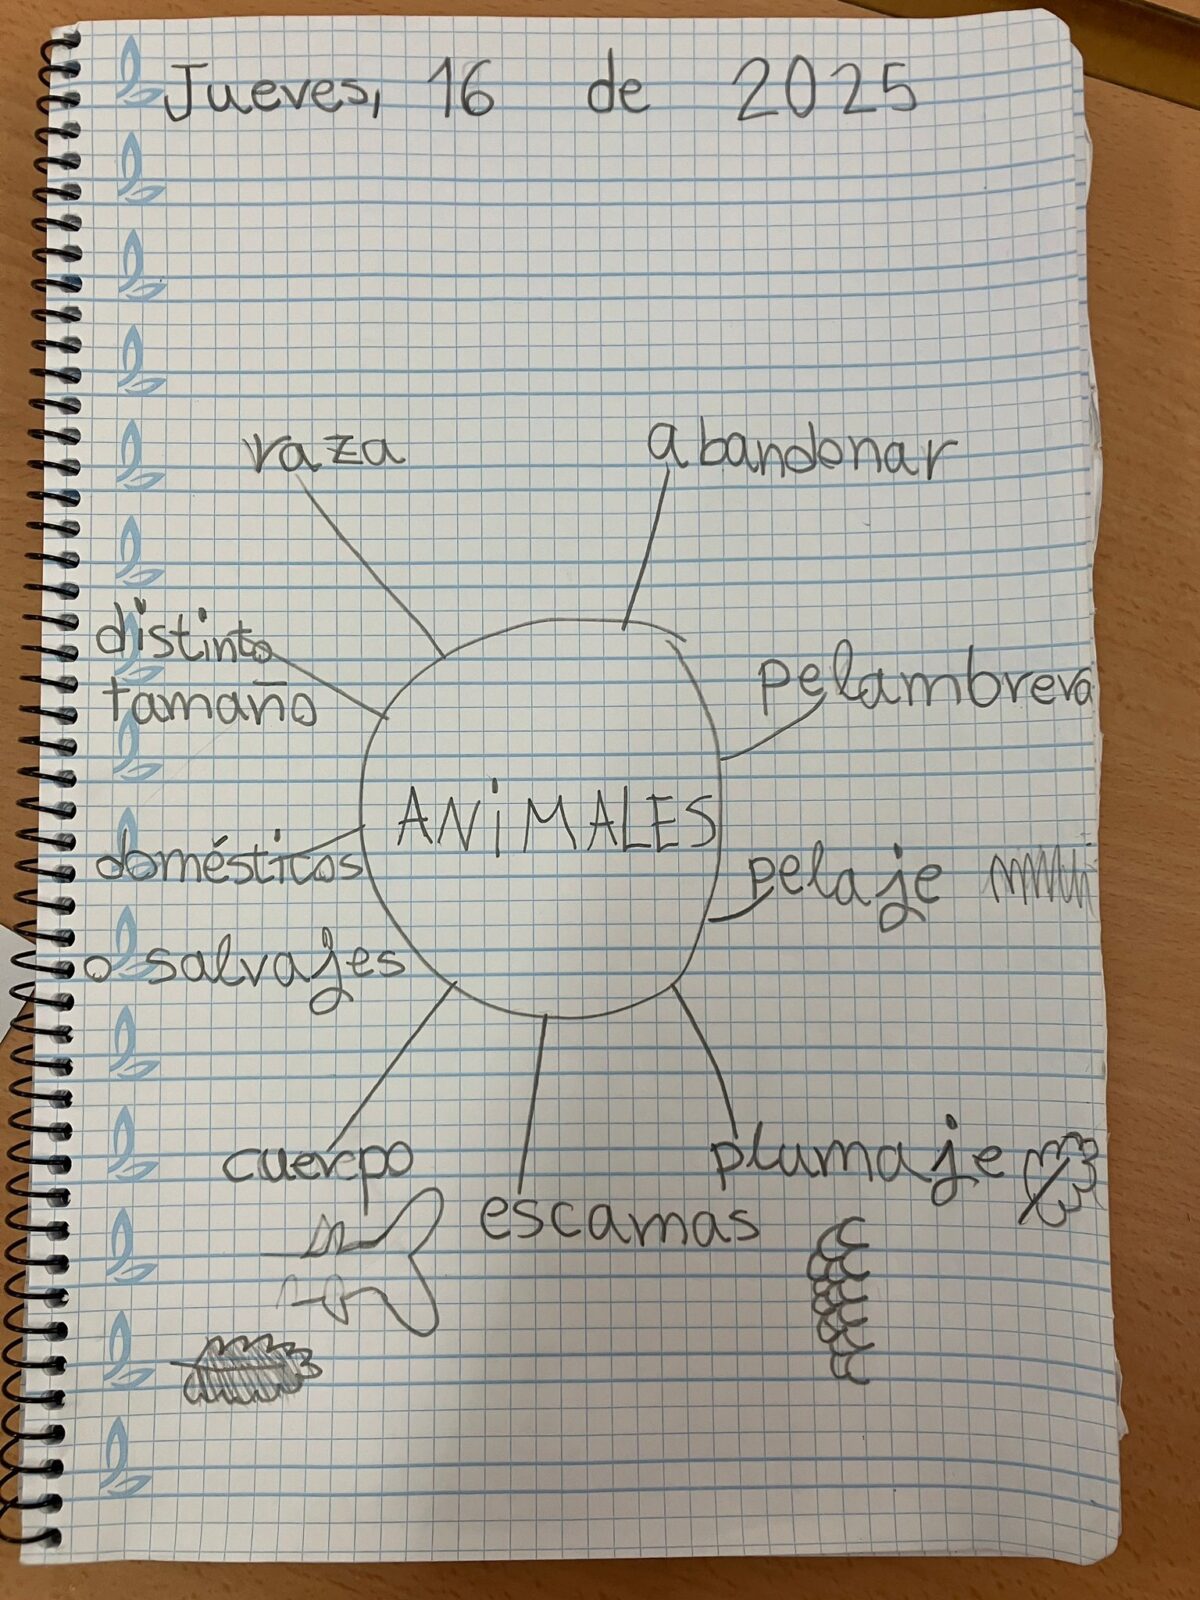 Jueves, 16 de 2025
raza
abandonar
distinto
tamaño
pelambrera
ANiMALES
domésticos
pelaje
o salvajes
cuerpo
plumaje
escamas